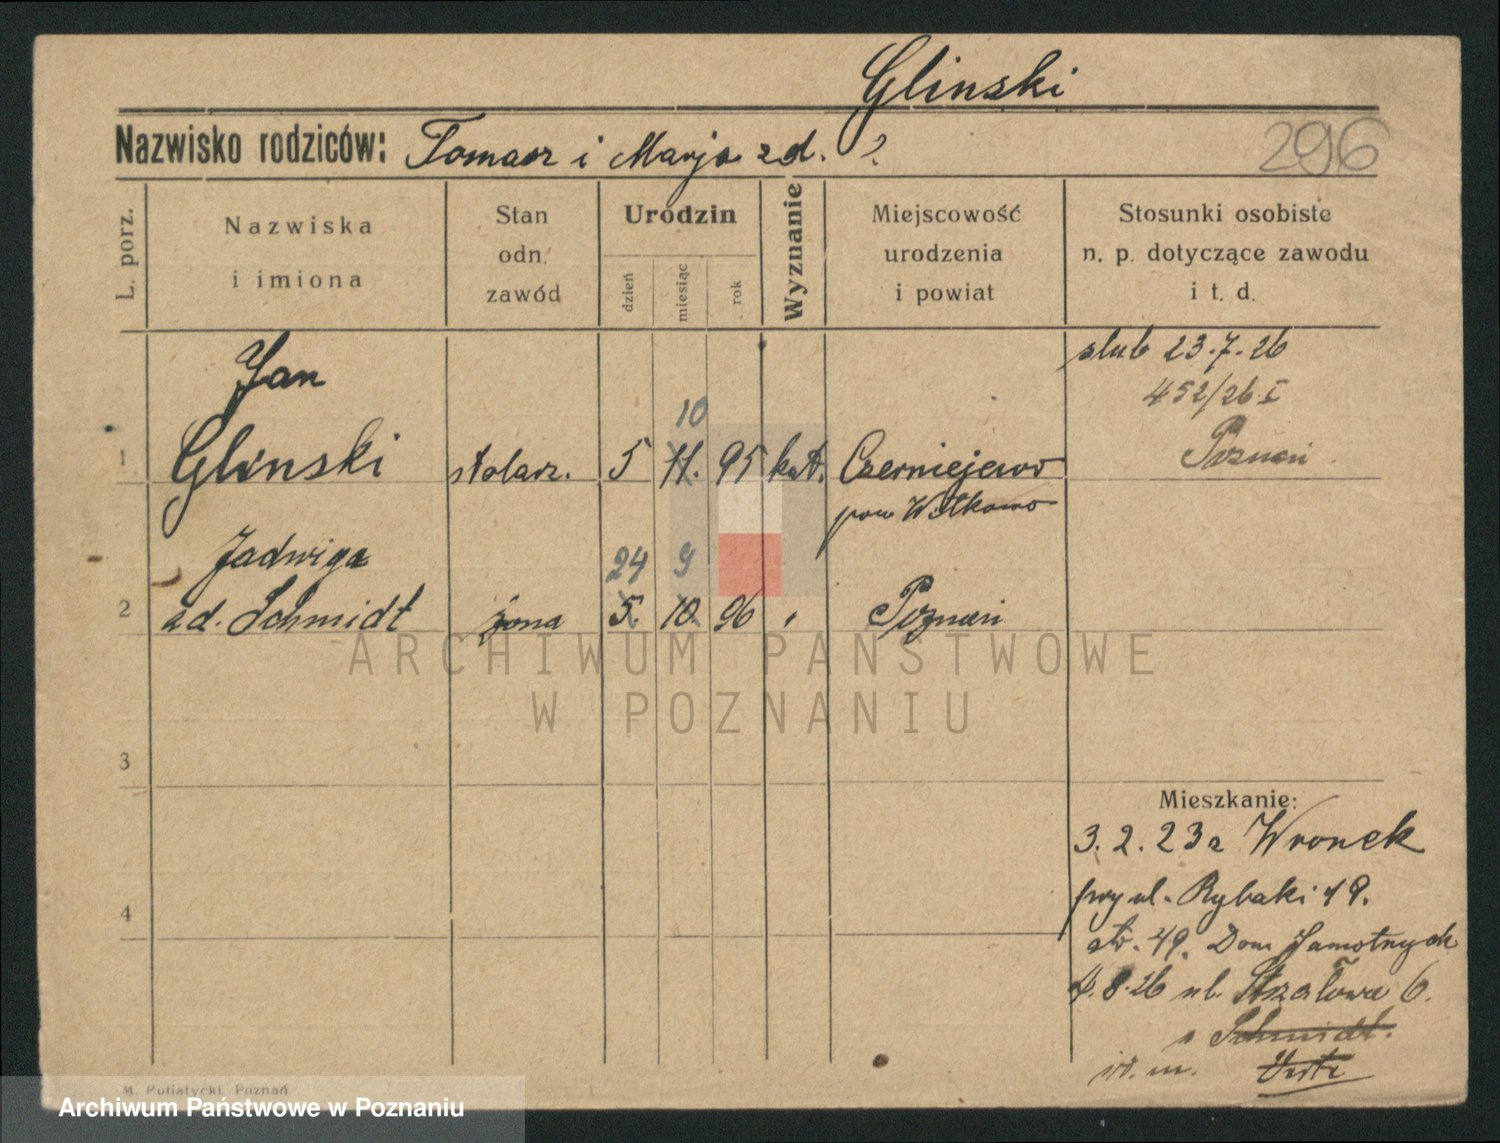 Glinski
Nazwisko rodziców: Tomasz i Marja zd. ?
296
L. porz.
Nazwiska
i imiona
Stan
odn.
zawód
Urodzin
dzień
miesiąc
rok
Wyznanie
Miejscowość
urodzenia
i powiat
Stosunki osobiste
n. p. dotyczące zawodu
i t. d.
ślub 23.7.26
452/26 I
Poznań
Jan
10
1 Glinski stolarz. 5 11. 95 kat. Czerniejewo
pow Witkowo
Jadwiga 24 9
2 zd. Schmidt żona 5. 10 96 " Poznań
3
4
Mieszkanie:
3.2.23 z Wronek
przy ul. Rybaki 19.
str. 49. Dom Samotnych
4.8.26 ul. Strzałowa 6.
s Schmidt.
i t. m.
M. Putiatycki, Poznań
ARCHIWUM PAŃSTWOWE
W POZNANIU
Archiwum Państwowe w Poznaniu